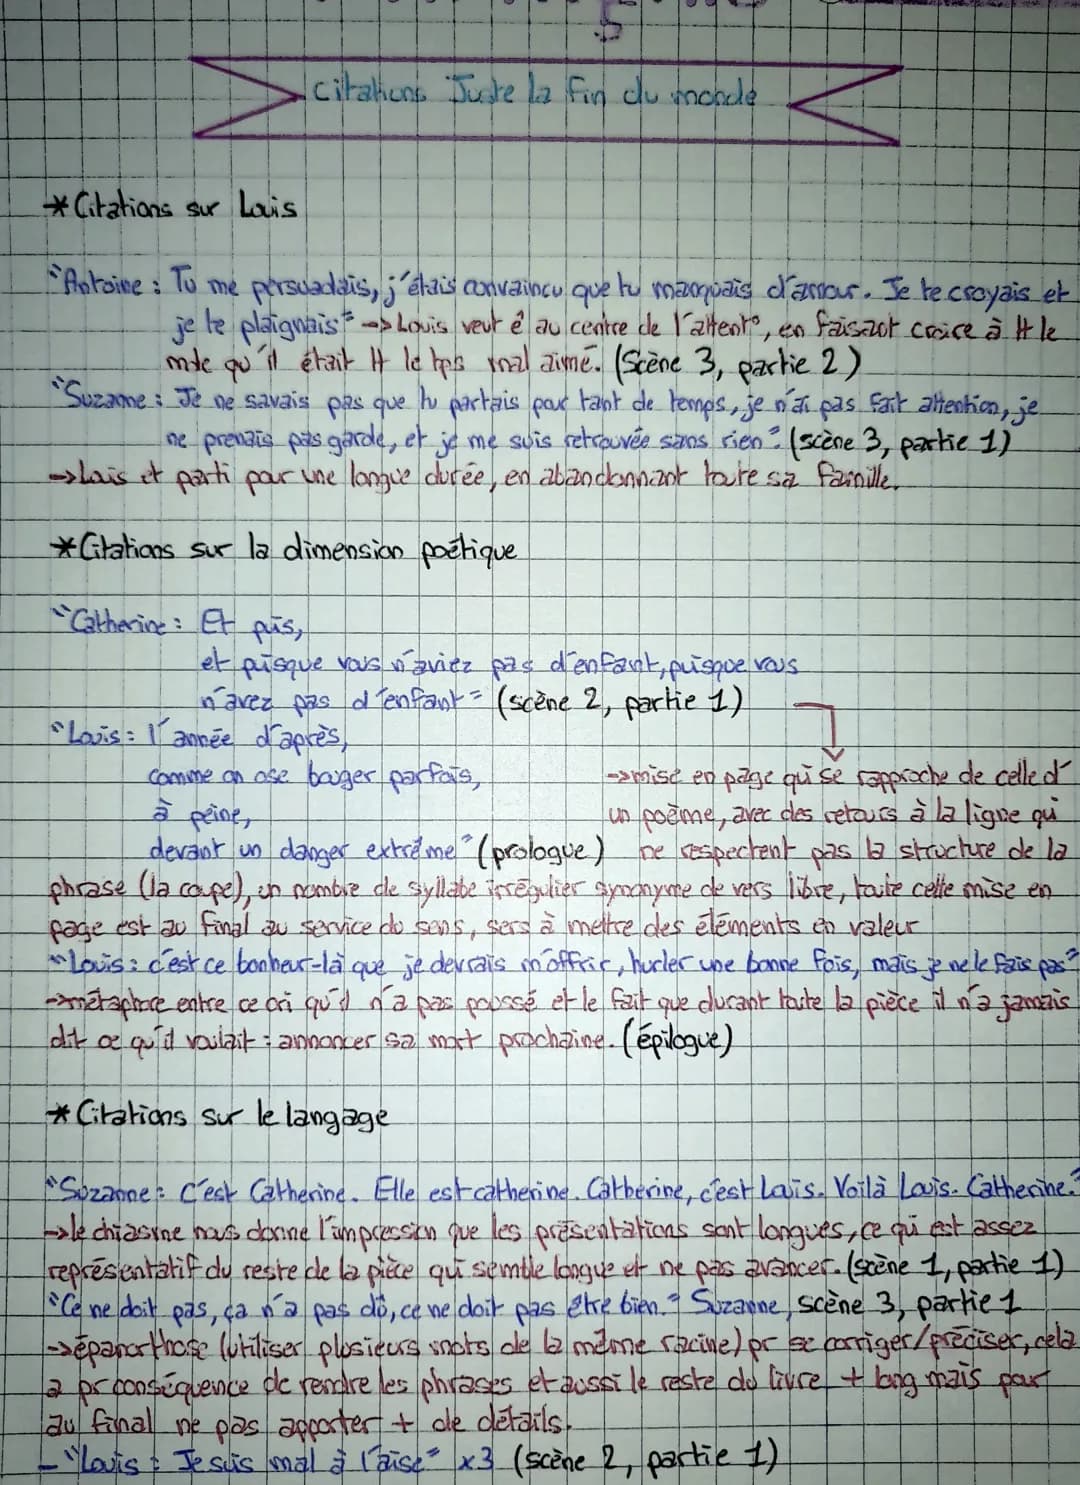 Citations Juste la fin du monde
* Citations sur Louis
"Antoine : Tu me persuadais, j'étais convaincu que tu manquais d'amour. Je te croyais et
je te plaignais" -> Louis veut ê au centre de l'attent°, en faisant croire à tt le
mde qu'il était tt le tps mal aimé. (Scène 3, partie 2)
"Suzanne : Je ne savais pas que tu partais pour tant de temps, je n'ai pas fait attention, je
ne prenais pas garde, et je me suis retrouvée sans rien". (scène 3, partie 1)
-> Louis et parti pour une longue durée, en abandonnant toute sa famille.
* Citations sur la dimension poétique
"Catherine : Et puis,
et puisque vous n'aviez pas d'enfant, puisque vous
n'avez pas d'enfant" (scène 2, partie 1)
"Louis : l'année d'après,
comme on ose bouger parfois,
-> mise en page qui se rapproche de celle d'
à peine,
un poème, avec des retours à la ligne qui
devant un danger extrême" (prologue)
ne respectent pas la structure de la
phrase (la coupe), un nombre de syllabe irrégulier synonyme de vers libre, toute cette mise en
page est au final au service du sens, sers à mettre des éléments en valeur
"Louis : c'est ce bonheur-là que je devrais m'offrir, hurler une bonne fois, mais je ne le fais pas"
-> métaphore entre ce cri qu'il n'a pas poussé et le fait que durant toute la pièce il n'a jamais
dit ce qu'il voulait : annoncer sa mort prochaine. (épilogue)
* Citations sur le langage
"Suzanne : C'est Catherine. Elle est catherine. Catherine, c'est Louis. Voilà Louis. Catherine."
-> le chiasme nous donne l'impression que les présentations sont longues, ce qui est assez
représentatif du reste de la pièce qui semble longue et ne pas avancer. (scène 1, partie 1)
"Ce ne doit pas, ça n'a pas dû, ce ne doit pas être bien." Suzanne, scène 3, partie 1
-> épanorthose (utiliser plusieurs mots de la même racine) pr se corriger/préciser, cela
a pr conséquence de rendre les phrases et aussi le reste du livre + long mais pour
au final ne pas apporter + de détails.
- "Louis : Je suis mal à l'aise" x3 (scène 2, partie 1)